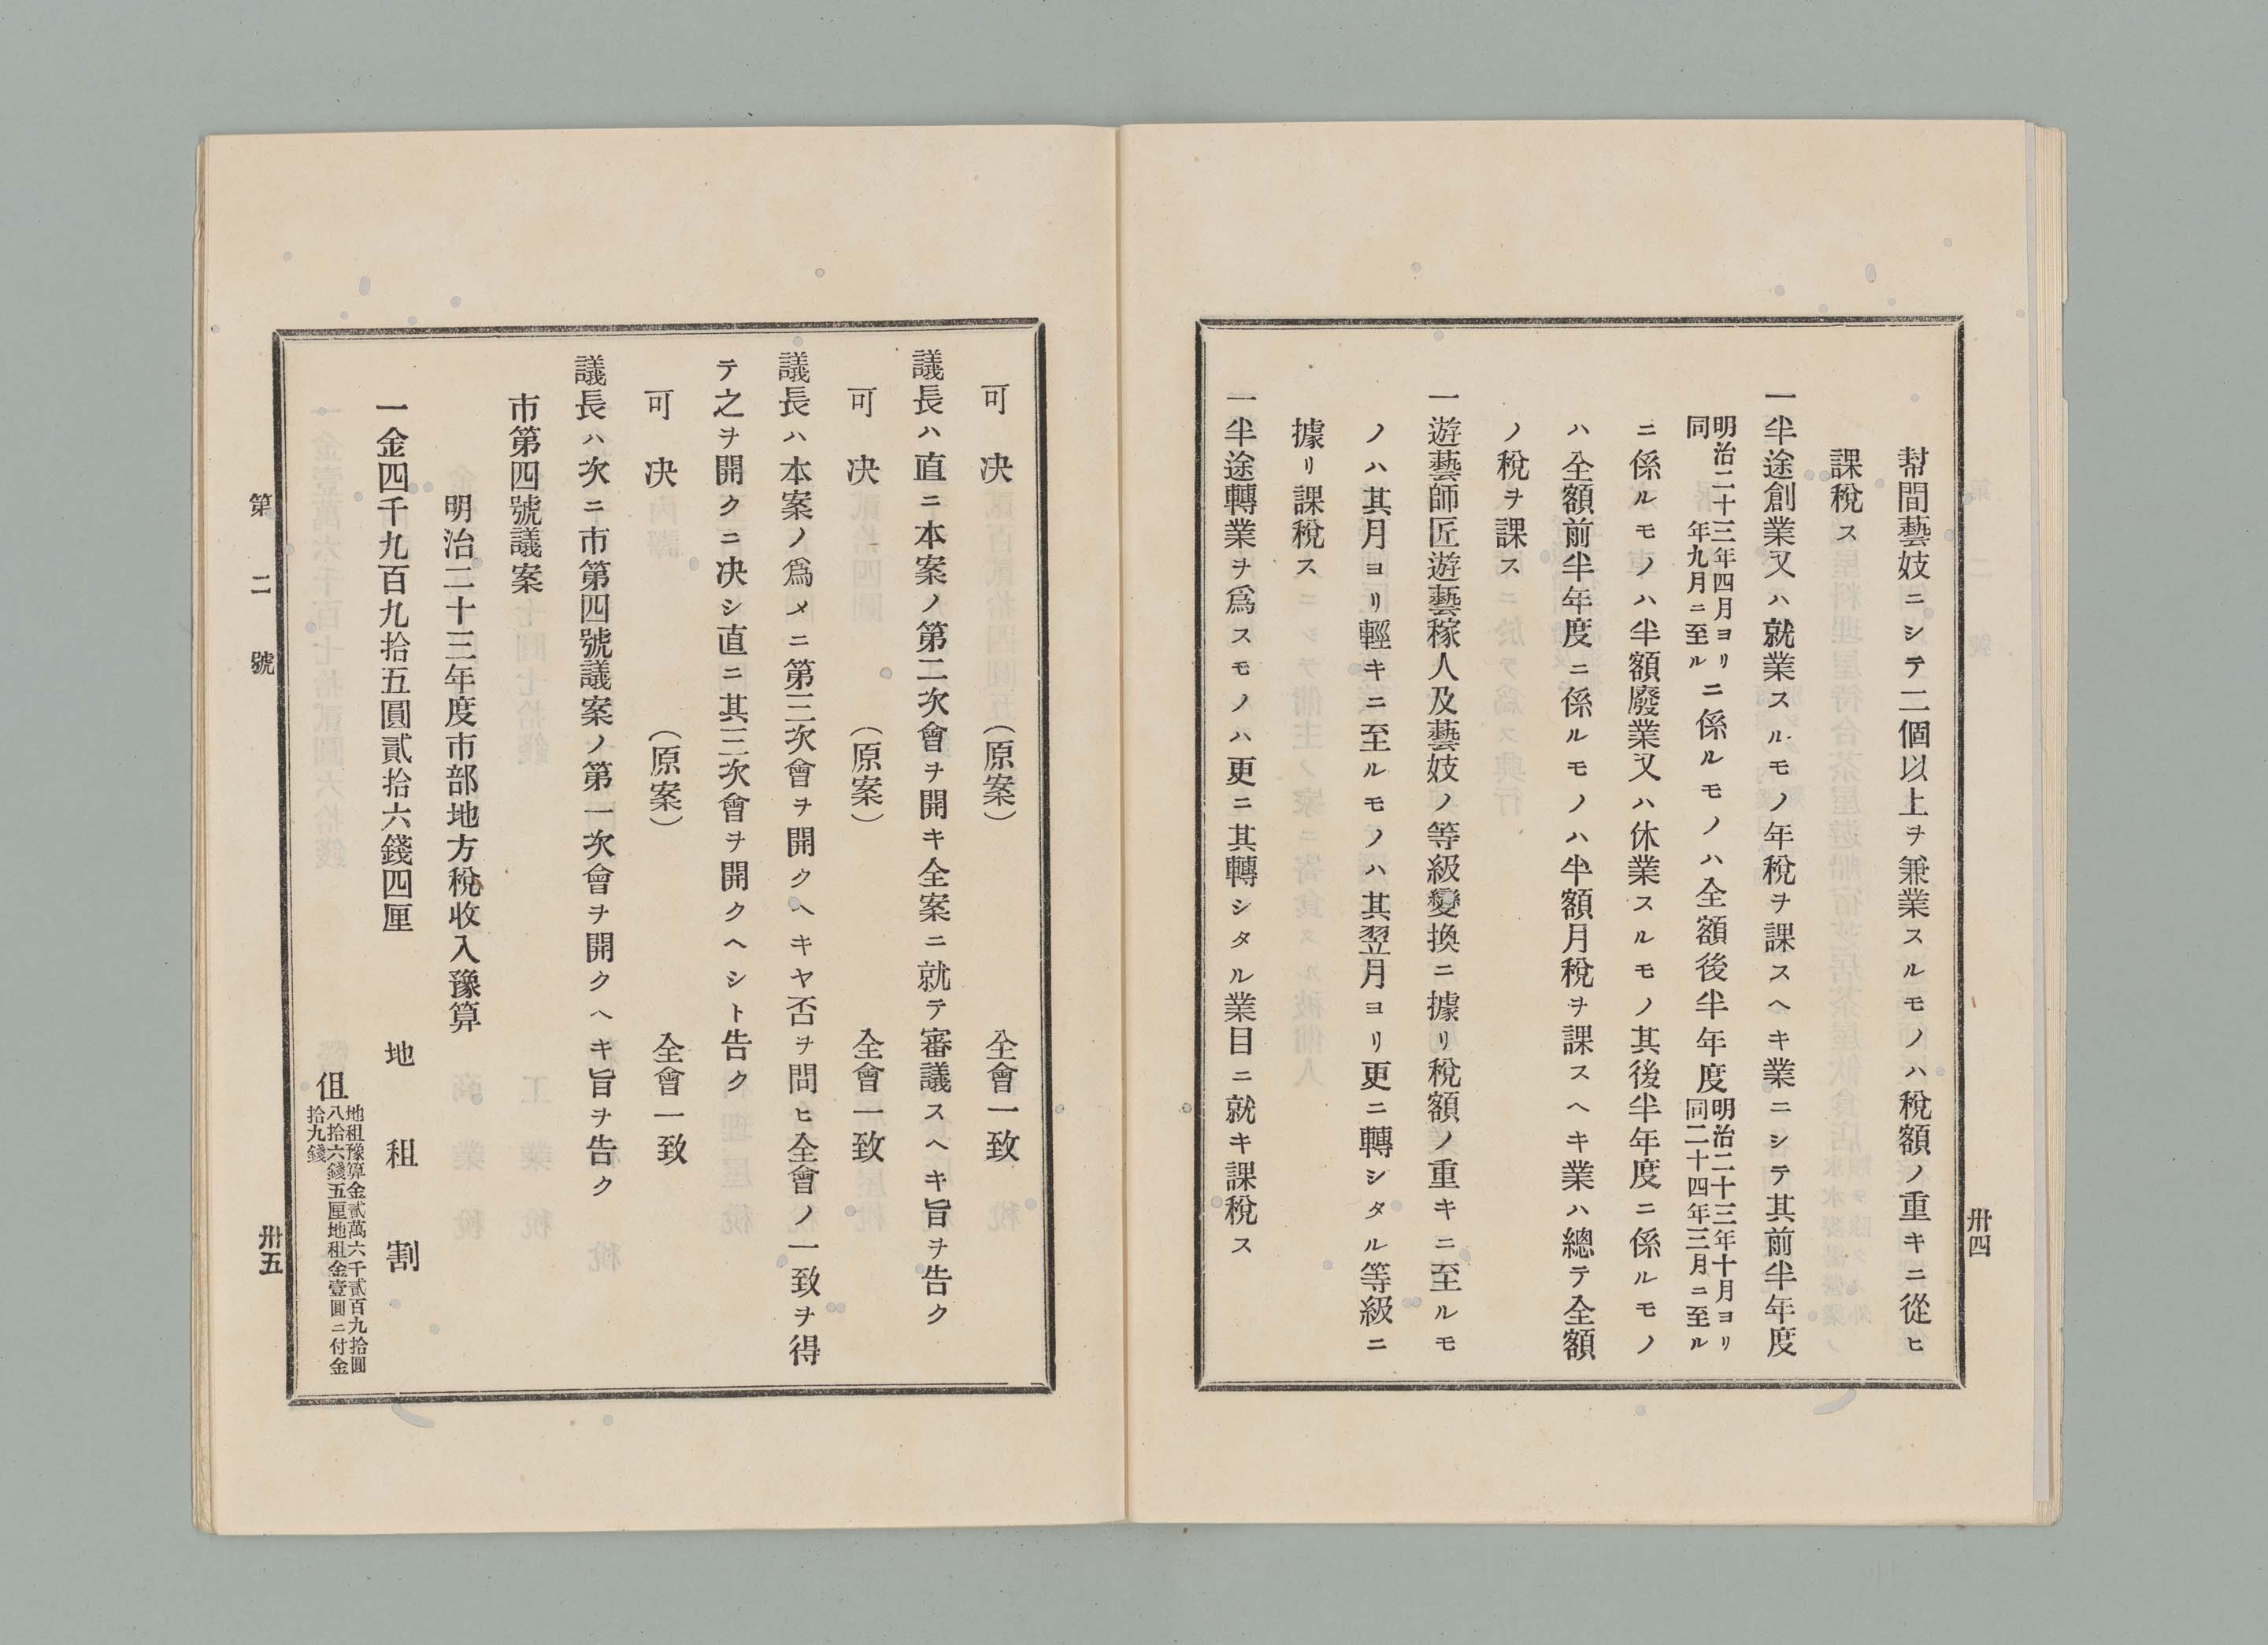 幇間藝妓ニシテ二個以上ヲ兼業スルモノハ稅額ノ重キニ從ヒ
課稅ス
一半途創業又ハ就業スルモノ年稅ヲ課スヘキ業ニシテ其前半年度
明治二十三年四月ヨリ
同年九月ニ至ル
ニ係ルモノハ全額後半年度
明治二十三年十月ヨリ
同二十四年三月ニ至ル
ニ係ルモノハ半額廢業又ハ休業スルモノ其後半年度ニ係ルモノ
ハ全額前半年度ニ係ルモノハ半額月稅ヲ課スヘキ業ハ總テ全額
ノ稅ヲ課ス
一遊藝師匠遊藝稼人及藝妓ノ等級變換ニ據リ稅額ノ重キニ至ルモ
ノハ其月ヨリ輕キニ至ルモノハ其翌月ヨリ更ニ轉シタル等級ニ
據リ課稅ス
一半途轉業ヲ爲スモノハ更ニ其轉シタル業目ニ就キ課稅ス
卅四
可決 (原案) 全會一致
議長ハ直ニ本案ノ第二次會ヲ開キ全案ニ就テ審議スヘキ旨ヲ告ク
可決 (原案) 全會一致
議長ハ本案ノ爲メニ第三次會ヲ開クヘキヤ否ヲ問ヒ全會ノ一致ヲ得
テ之ヲ開クニ决シ直ニ其三次會ヲ開クヘシト告ク
可決 (原案) 全會一致
議長ハ次ニ市第四號議案ノ第一次會ヲ開クヘキ旨ヲ告ク
市第四號議案
明治二十三年度市部地方稅收入豫算
一金四千九百九拾五圓貳拾六錢四厘 地租割
伹
地租豫算金貳萬六千貳百九拾圓
八拾六錢五厘地租金壹圓ニ付金
拾九錢
第二號
卅五